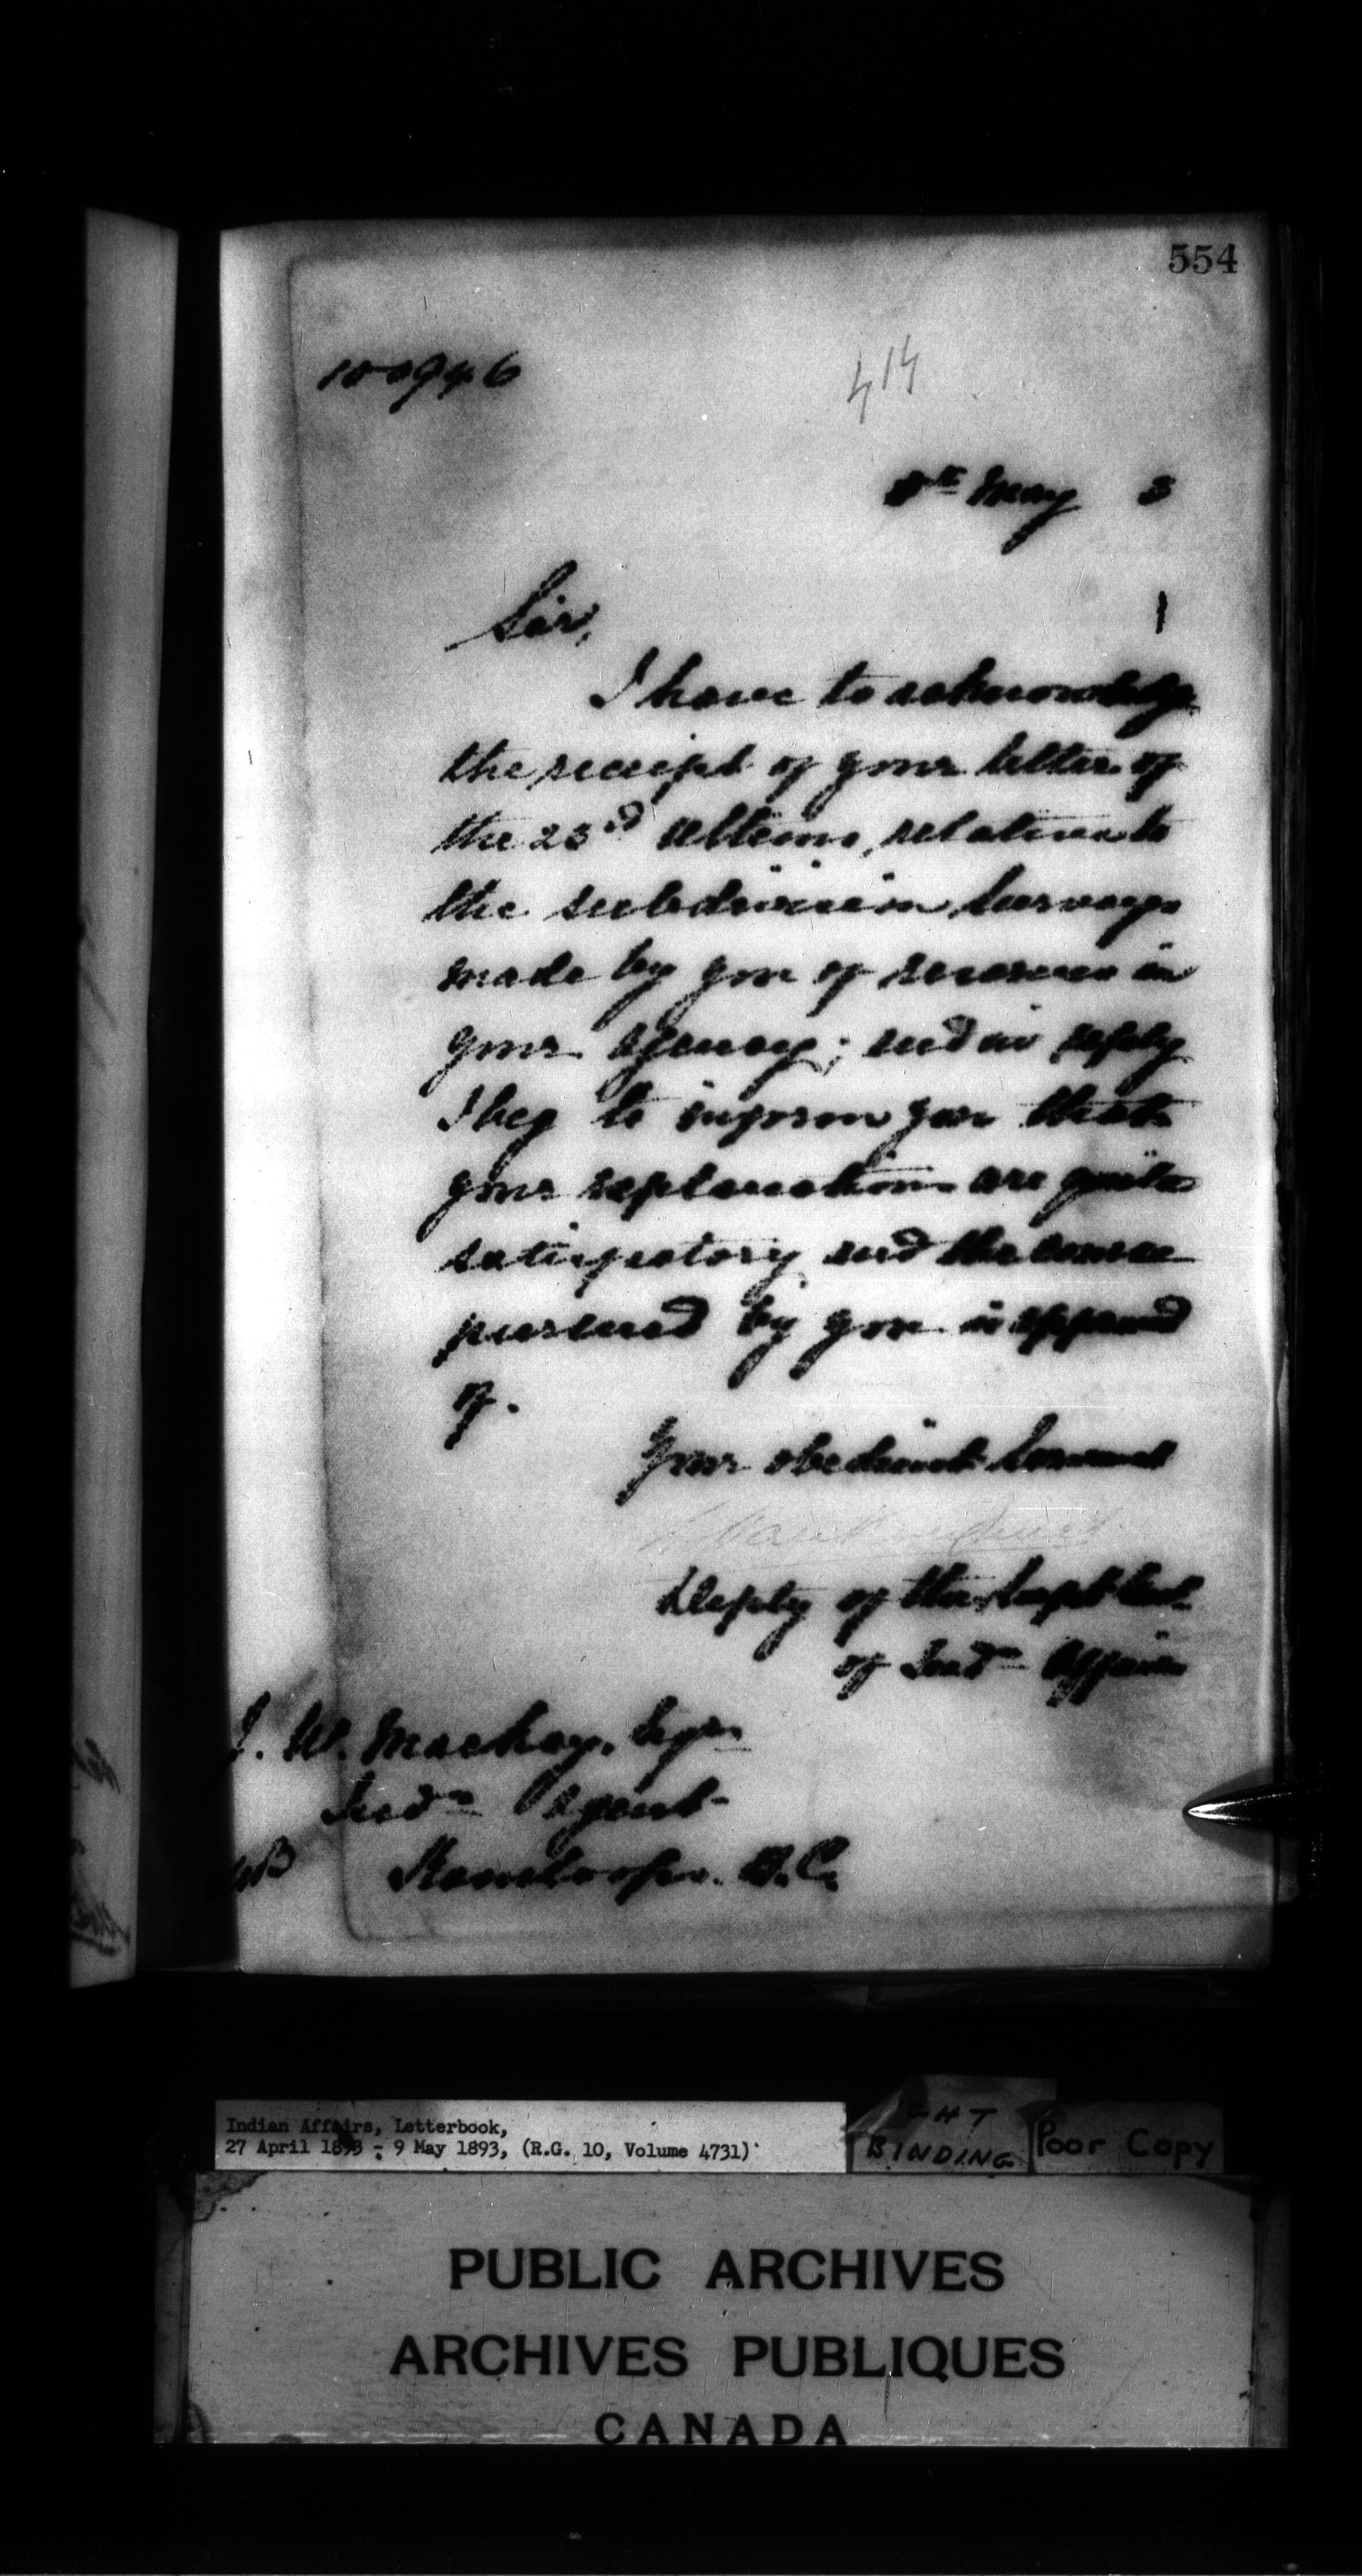 554
100946
414
8th May 3
Sir,
I have to acknowledge
the receipt of your letter of
the 23rd ultimo, relative to
the subdivision surveys
made by you of reserves in
your Agency; and in reply
I beg to inform you that
your explanations are quite
satisfactory and the course
pursued by you is approved
of.
Your obedient Servant
Deputy of the Supt Genl.
of Indn Affairs
J. W. Mackay, Esqr.
Indn Agent
Kamloops. B.C.
Indian Affairs, Letterbook,
27 April 1893 - 9 May 1893, (R.G. 10, Volume 4731)
BINDING
Poor Copy
PUBLIC ARCHIVES
ARCHIVES PUBLIQUES
CANADA